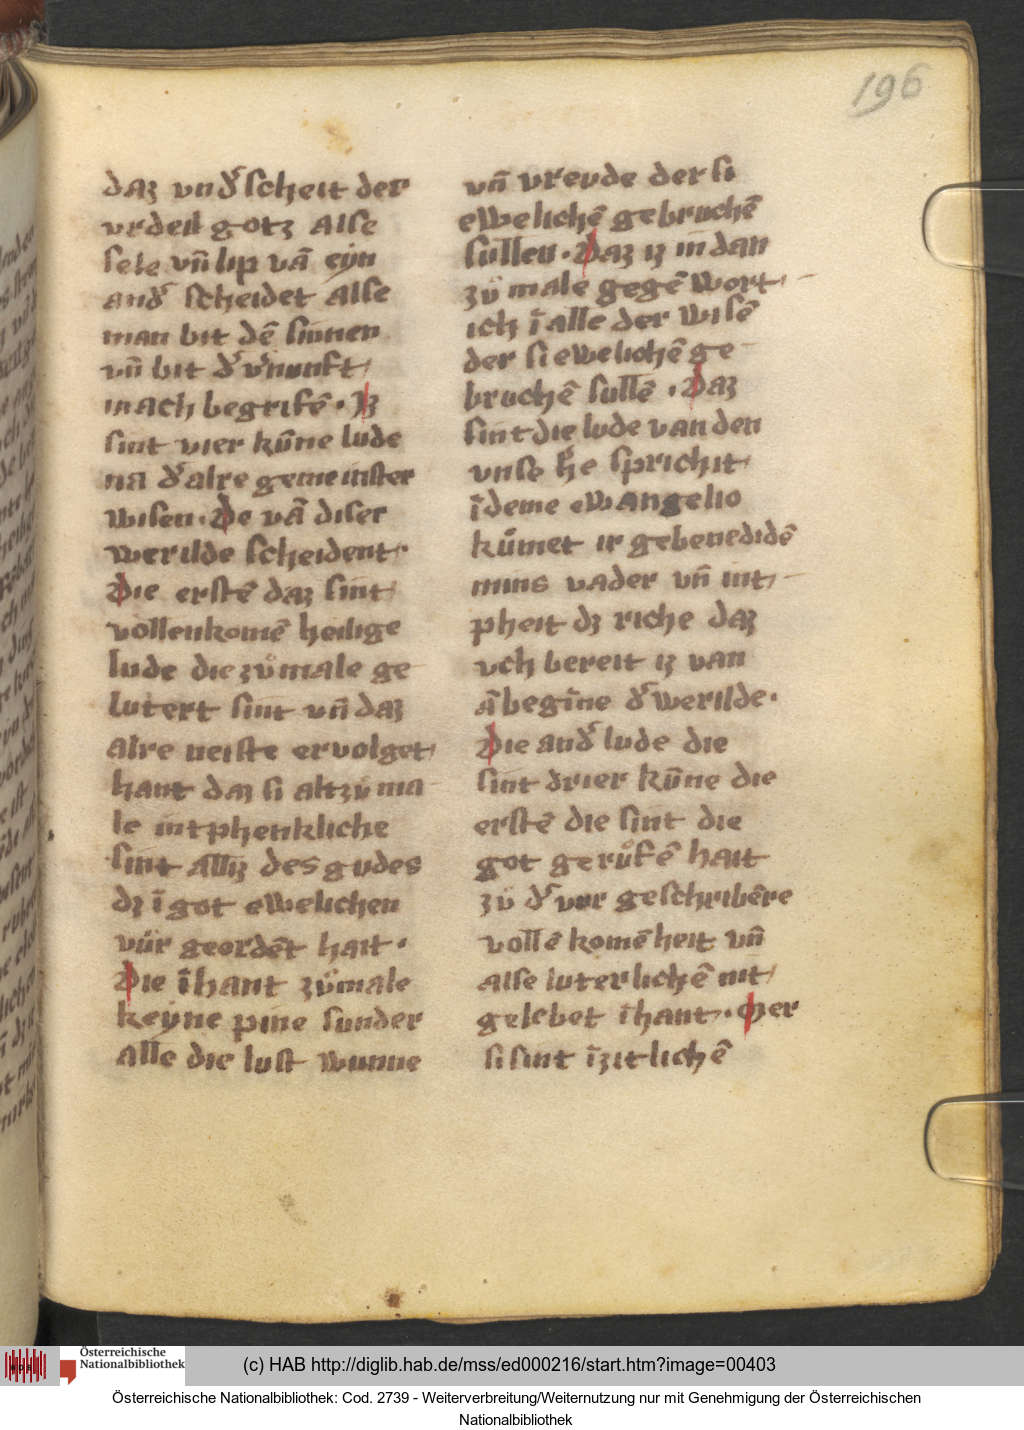 196
daz vnd᷑scheit der
vrdeil gotz alse
sele vn̄ lip vā eyn
and᷑ scheidet alse
man bit dē sinnen
vn̄ bit d᷑ v᷑nunft
mach begrifē · Iz
sint vier kūne lude
na d᷑ alre gemeinster
wisen · De vā diser
werilde scheident ·
Die erstē daz sint
vollenkomē heilige
lude die zůmale ge
lutert sint vn̄ daz
alre neiste ervolget
hant daz si altzůma
le intphenkliche
sint alliz des gudes
dz ī got ewelichen
vůr geordēt hait ·
Die īhant zůmale
keyne pine sunder
alle die lust wunne
vn̄ vreude der si
ewelichē gebruchē
sullen · Daz iz in dan
zů male gegē wort
ich ī alle der wisē
der si ewelichē ge
bruchē sullē · Daz
sint die lude van den
vnse h᷑e sprichit
ī deme ewangelio
kůmet ir gebenedidē
mins vader vn̄ int
pheit dz riche daz
vch bereit iz van
ā begīne d᷑ werilde ·
Die and᷑ lude die
sint drier kūne die
erstē die sint die
got gerůfē hait
zů d᷑ vor geschribēre
vollē komēheit vn̄
alse luterlichē nit
gelebet īhant · Mer
si sint īzitlichē
Österreichische
Nationalbibliothek
(c) HAB http://diglib.hab.de/mss/ed000216/start.htm?image=00403
Österreichische Nationalbibliothek: Cod. 2739 - Weiterverbreitung/Weiternutzung nur mit Genehmigung der Österreichischen
Nationalbibliothek